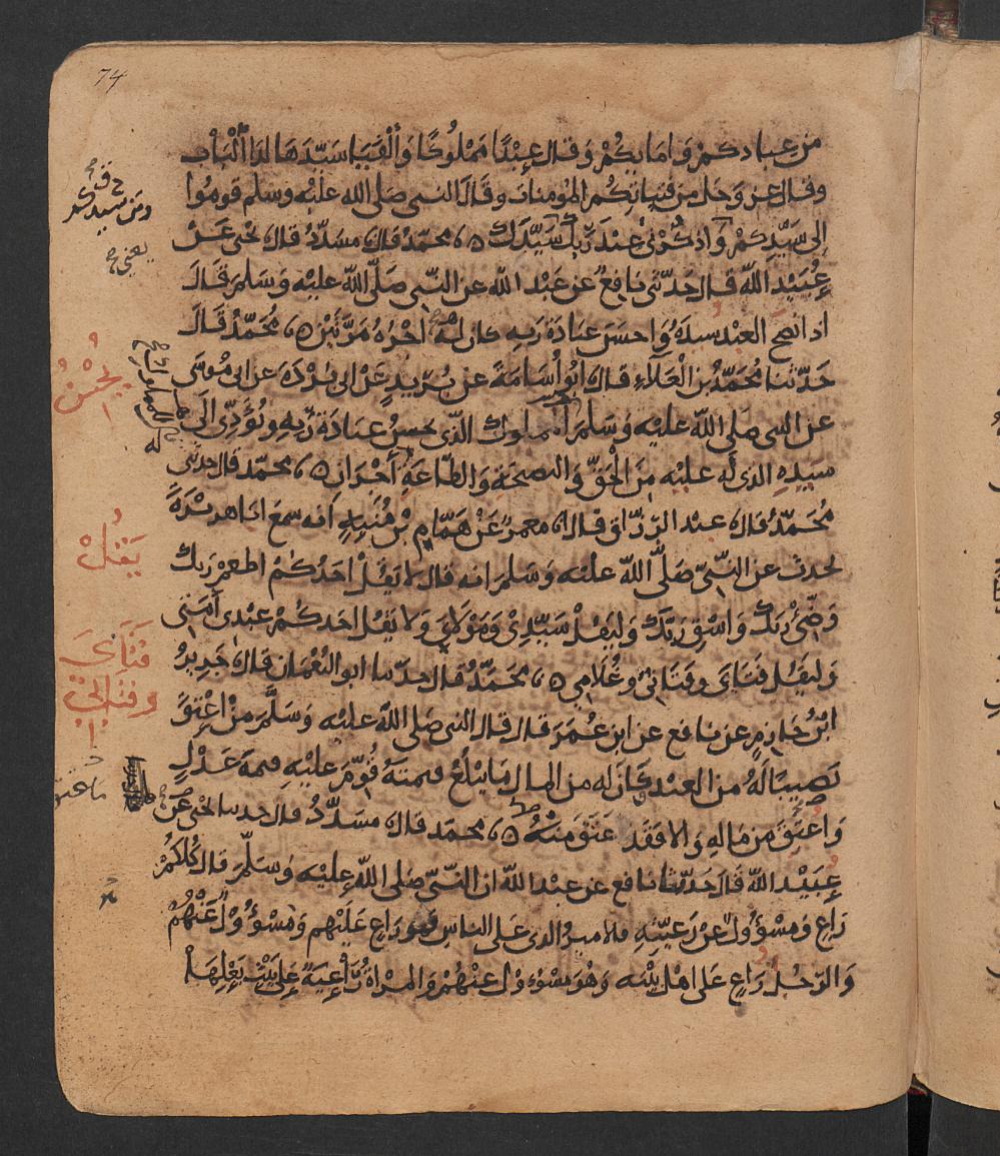 74
من عبادكم وامايكم وقال عبدا مملوكا وألفيا سيدها لدا ألباب
وقال عز وجل من فتياتكم المومنات وقال النبي صلى الله عليه وسلم قوموا
إلى سيدكم واذكرني عند ربك سيدك ه محمد قال مسدد قال يحيى عن
عبيد الله قال حدثني نافع عن عبد الله عن النبي صلى الله عليه وسلم قال
اذا نصح العبد سيده واحسن عبادة ربه كان له اجره مرتين ه محمد قال
حدثنا محمد بن العلاء قال ابو أسامة عن بريد عن ابي بردة عن ابي موسى
عن النبي صلى الله عليه وسلم المملوك الذي يحسن عبادة ربه ويؤدي الى
سيده الذي له عليه من الحق والنصيحة والطاعة أجران ه محمد قال حدثني
محمد قال عبد الرزاق قال معمر عن همام بن منبه أنه سمع اباهريرة
يحدث عن النبي صلى الله عليه وسلم انه قال لا يقل احدكم اطعم ربك
وضئ ربك واسق ربك وليقل سيدي ومولاي ولا يقل احدكم عبدي أمتي
وليقل فتاي وفتاتي وغلامي ه محمد قال حدثنا ابو النعمان قال جرير
ابن حازم عن نافع عن ابن عمر قال قال النبي صلى الله عليه وسلم من اعتق
نصيبا له من العبد فكان له من المال ما يبلغ قيمته قوم عليه قيمة عدل
واعتق من ماله والا فقد عتق منه ه محمد قال مسدد قال حدثنا يحيى عن
عبيد الله قال حدثنا نافع عن عبد الله ان النبي صلى الله عليه وسلم قال كلكم
راع ومسؤول عن رعيته فالامير الذي على الناس فهو راع عليهم ومسؤول عنهم
والرجل راع على اهل بيته وهو مسؤول عنهم والمراة راعية على بيت بعلها
ومن سيدكم
يعني
يحسن
يقل
فتاي
وفتاتي
ما عتق